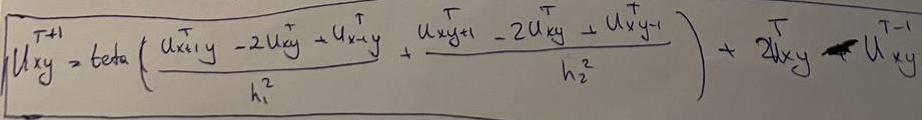 U_{xy}^{T+1} = teta ( \frac{U_{x+1y}^{T} - 2U_{xy}^{T} + U_{x-1y}^{T}}{h_1^2} + \frac{U_{xy+1}^{T} - 2U_{xy}^{T} + U_{xy-1}^{T}}{h_2^2} ) + 2U_{xy}^{T} - U_{xy}^{T-1}